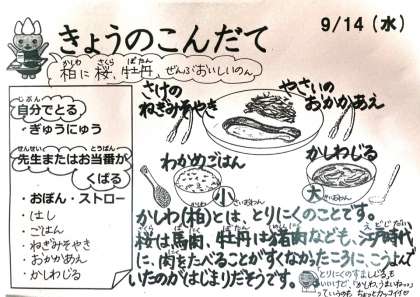 きょうのこんだて
9/14(水)
柏に桜、牡丹、ぜんぶおいしいのん
自分でとる
・ぎゅうにゅう
先生またはお当番が
くばる
・おぼん・ストロー
・はし
・ごはん
・ねぎみそやき
・おかかあえ
・かしわじる
さけの
ねぎみそやき
やさいの
おかかあえ
わかめごはん
小
かしわじる
大
かしわ(柏)とは、とりにくのことです。
桜は馬肉、牡丹は猪肉なども、江戸時代
に、肉をたべることがすくなかったころに、こうよんで
いたのがはじまりだそうです。
とりにくのすましじる、も
いいけど、「かしわ、うまいねっ」
っていうのも、ちょっとカッコイイ♡